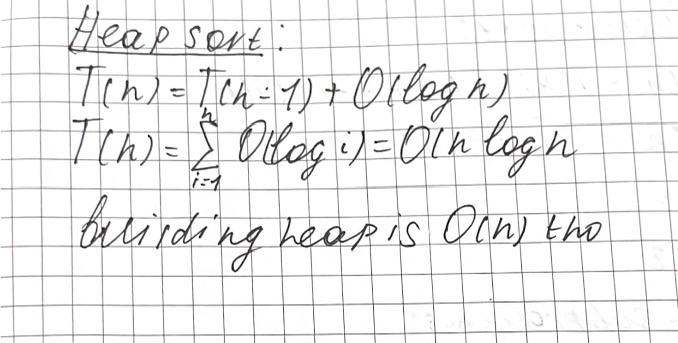 Heap sort:
T(n) = T(n-1) + O(log n)
T(n) = ∑_{i=1}^{n} O(log i) = O(n log n
building heap is O(n) tho